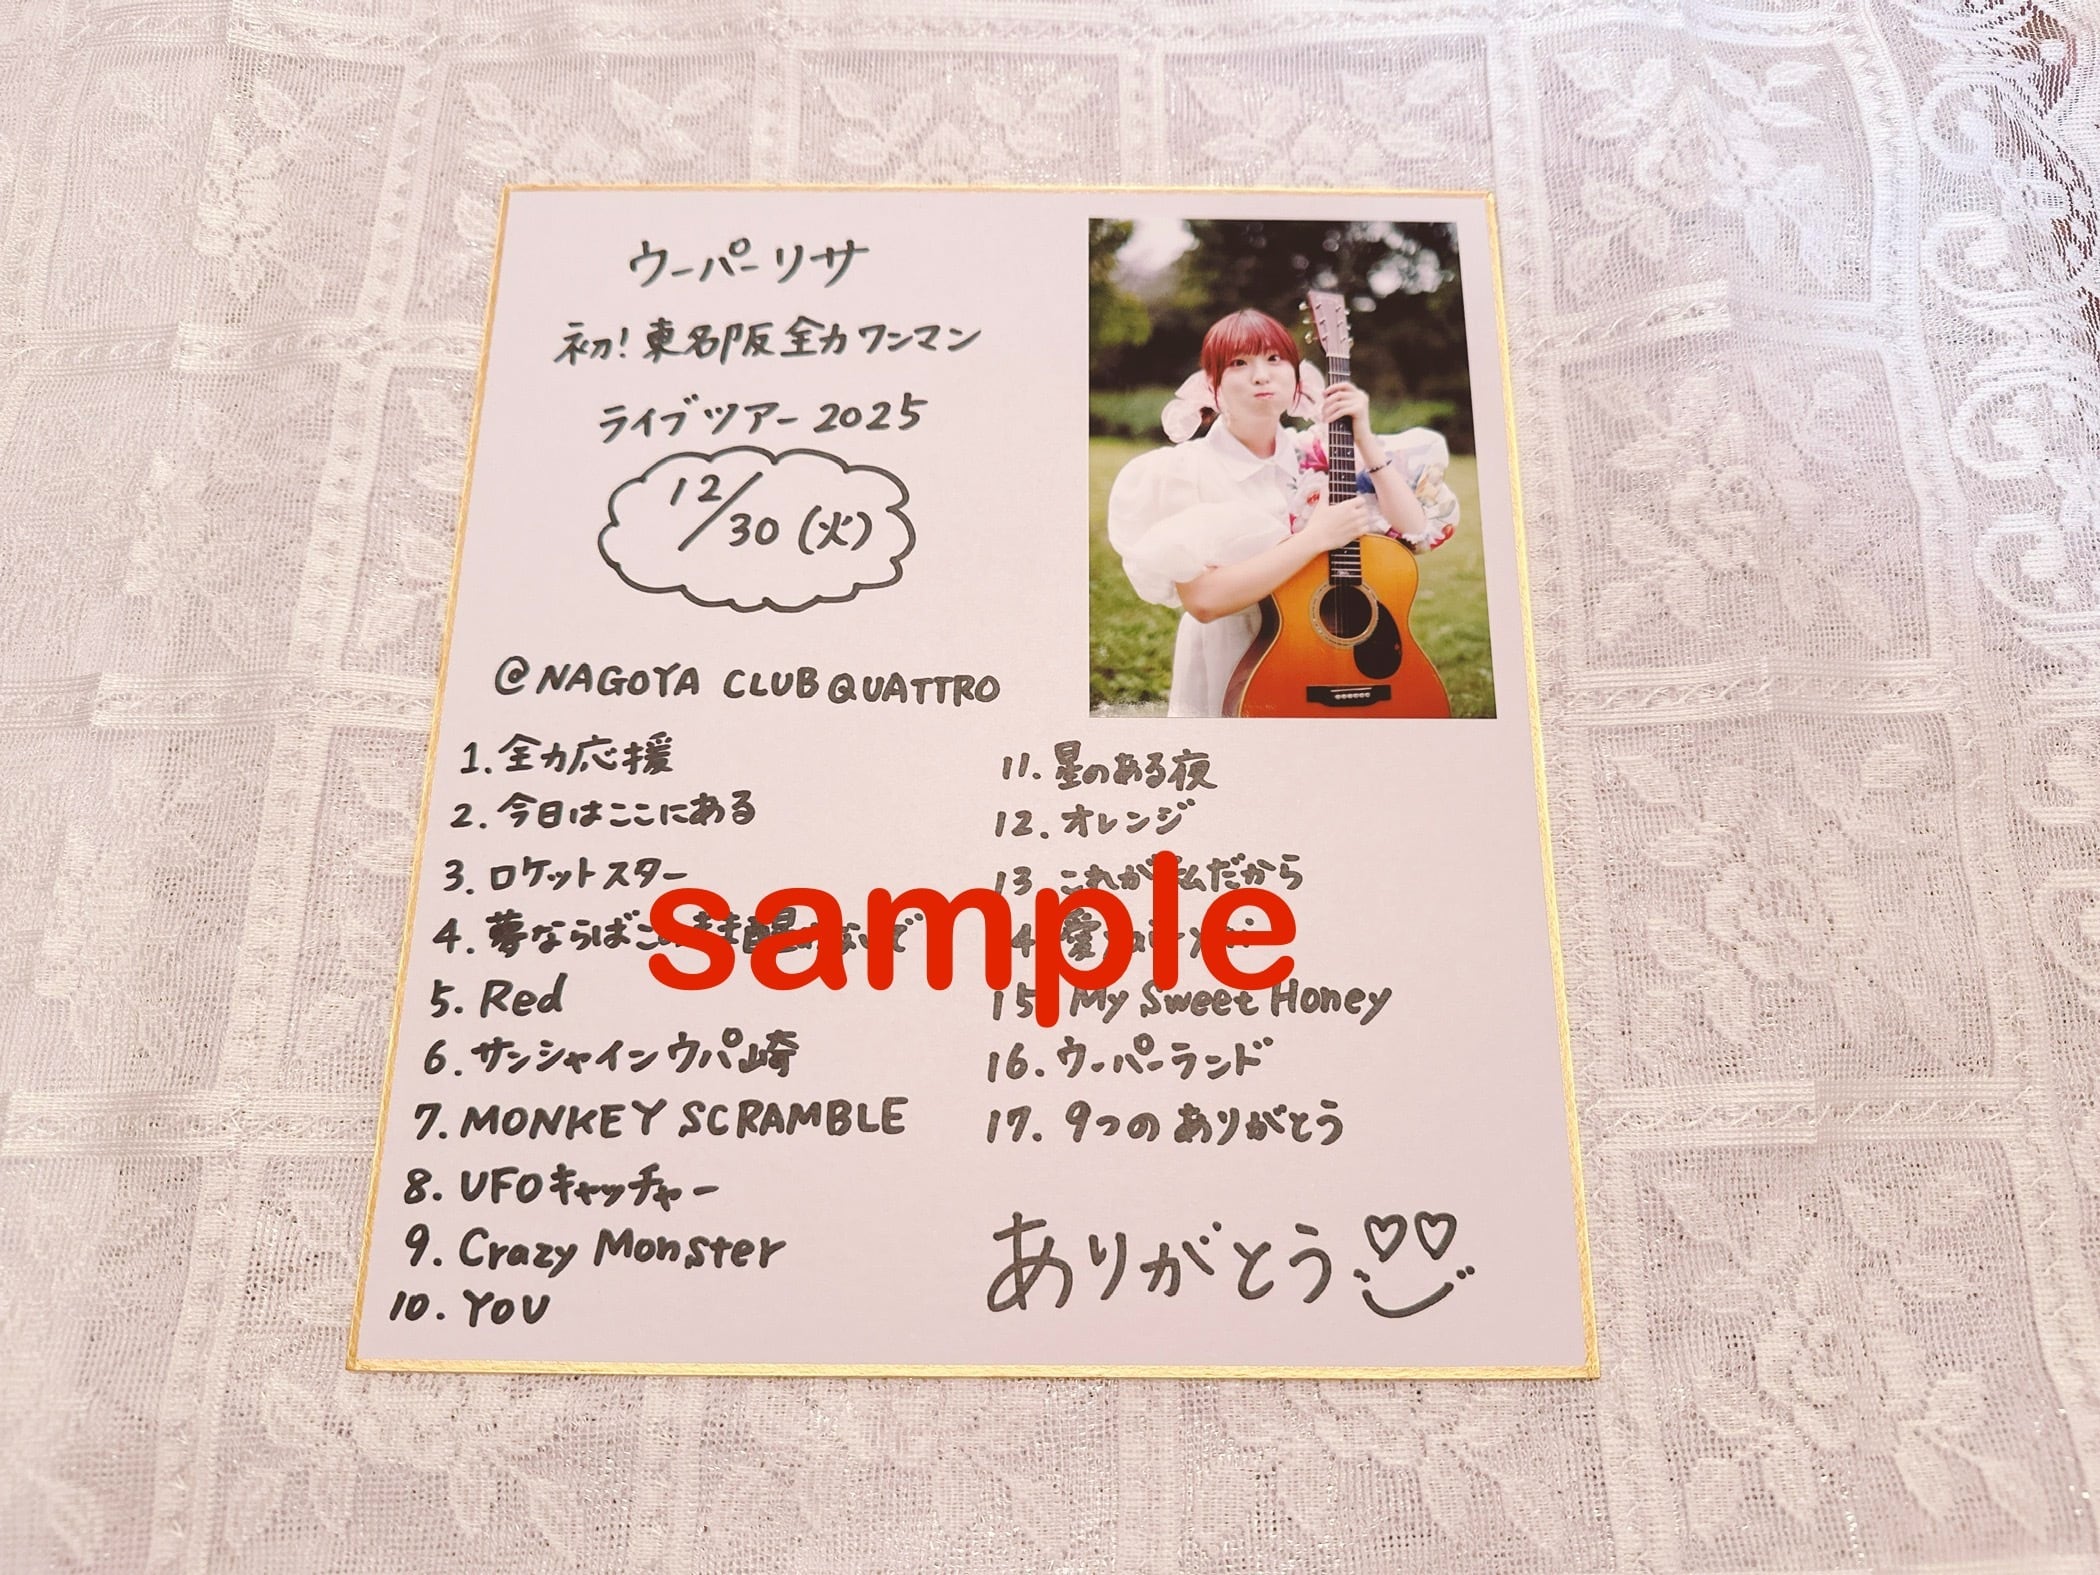 ウーパーリサ
初!東名阪全力ワンマン
ライブツアー2025
12/30(火)
@NAGOYA CLUB QUATTRO
1. 全力応援
2. 今日はここにある
3. ロケットスター
4. 夢ならばこのまま醒めないで
5. Red
6. サンシャインウパ崎
7. MONKEY SCRAMBLE
8. UFOキャッチャー
9. Crazy Monster
10. YOU
11. 星のある夜
12. オレンジ
13. これが私だから
15. My Sweet Honey
16. ウーパーランド
17. 9つのありがとう
ありがとう
sample